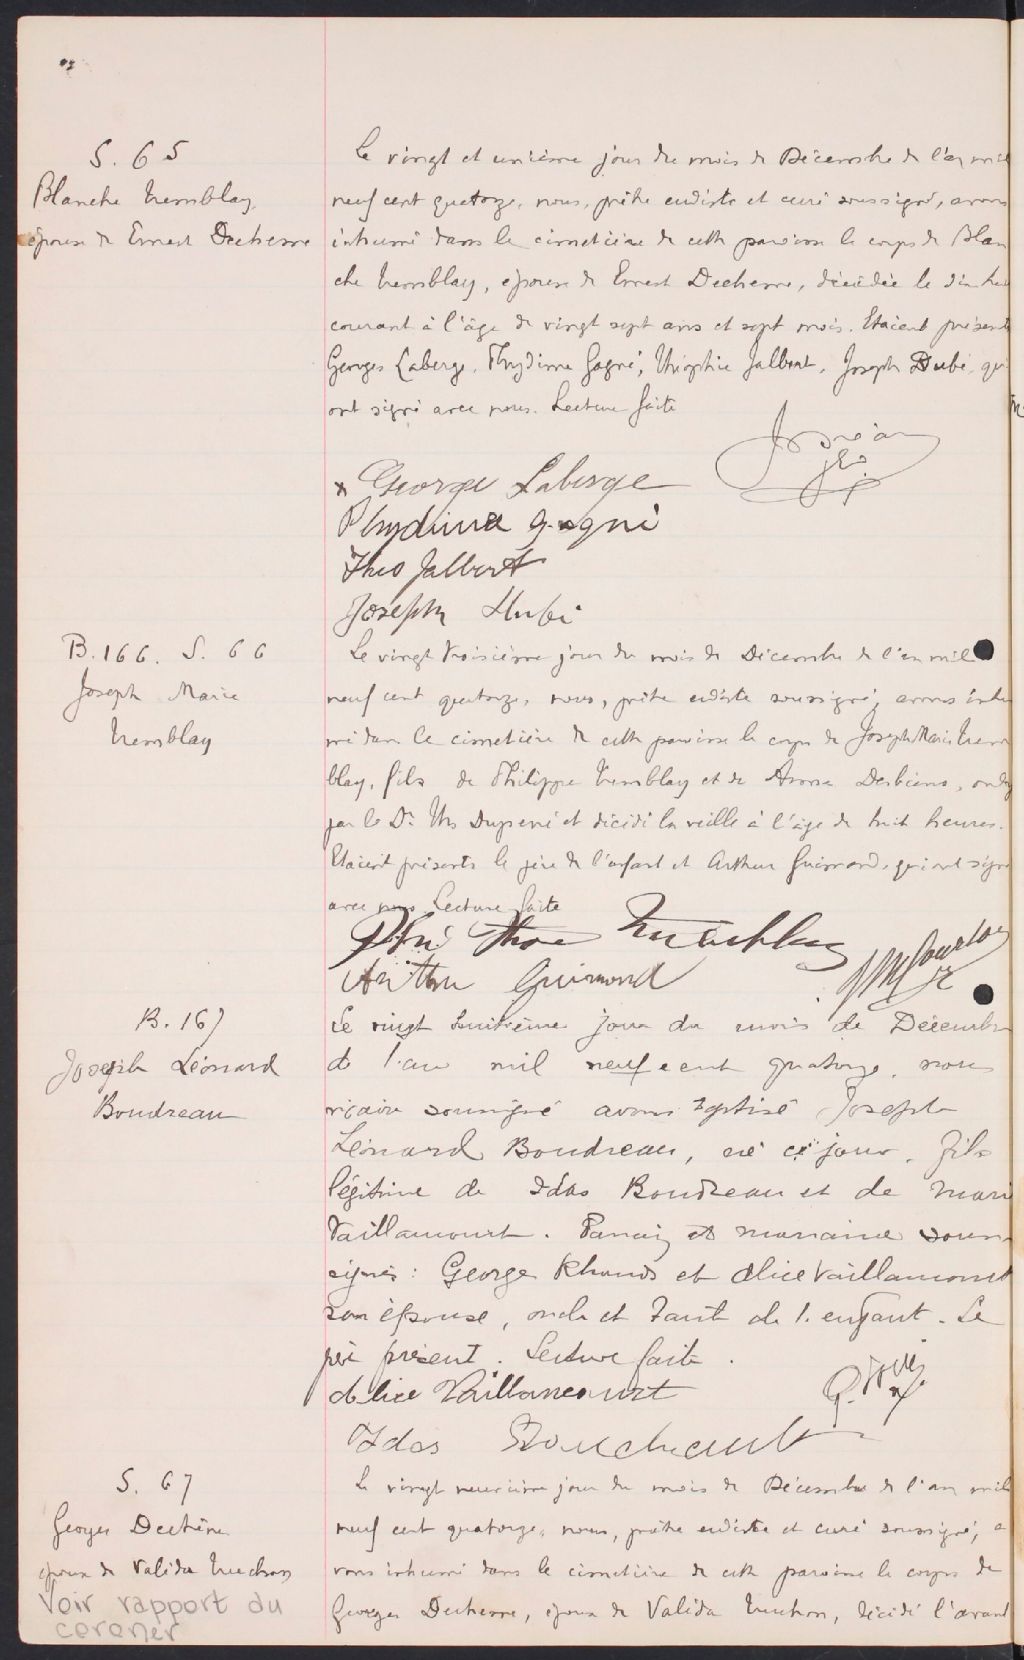 S. 65
Blanche Tremblay,
épouse de Ernest Dechesne
Le vingt et unième jour du mois de Décembre de l'an mil
neuf cent quatorze, nous, prêtre eudiste et curé soussigné, avons
inhumé dans le cimetière de cette paroisse le corps de Blan
che Tremblay, épouse de Ernest Dechesne, décédée le dix huit
courant à l'âge de vingt sept ans et sept mois. Etaient présents
Georges Laberge, Phydime Gagné, Théophile Jalbert, Joseph Dubé, qui
ont signé avec nous. Lecture faite
x George Laberge
Phydime Gagné
Theo Jalbert
Joseph Dubé
B. 166. S. 66
Joseph Marie
Tremblay
Le vingt troisième jour du mois de Décembre de l'an mil
neuf cent quatorze, nous, prêtre eudiste soussigné, avons inhu
mé dans le cimetière de cette paroisse le corps de Joseph Marie Trem
blay, fils de Philippe Tremblay et de Desbiens, ondoyé
par le Dr. et décédé la veille à l'âge de huit heures.
Etaient présents le père de l'enfant et Arthur Guimond, qui ont signé
avec nous Lecture faite
Tremblay
Arthur Guimond
B. 167
Joseph Léonard
Boudreau
Le vingt huitième jour du mois de Décembre
de l'an mil neuf cent quatorze, nous
vicaire soussigné avons baptisé Joseph
Léonard Boudreau, né ce jour, fils
légitime de Idas Boudreau et de Marie
Vaillancourt. Parrain et marraine sous
signés: George et Alice Vaillancourt
son épouse, oncle et tante de l'enfant. Le
père présent. Lecture faite.
Alice Vaillancourt
Idas
S. 67
Georges Dechêne
époux de Valida Truchon
Voir rapport du
coroner
Le vingt neuvième jour du mois de Décembre de l'an mil
neuf cent quatorze, nous, prêtre eudiste et curé soussigné, a
vons inhumé dans le cimetière de cette paroisse le corps de
Georges Dechesne, époux de Valida Truchon, décédé l'avant